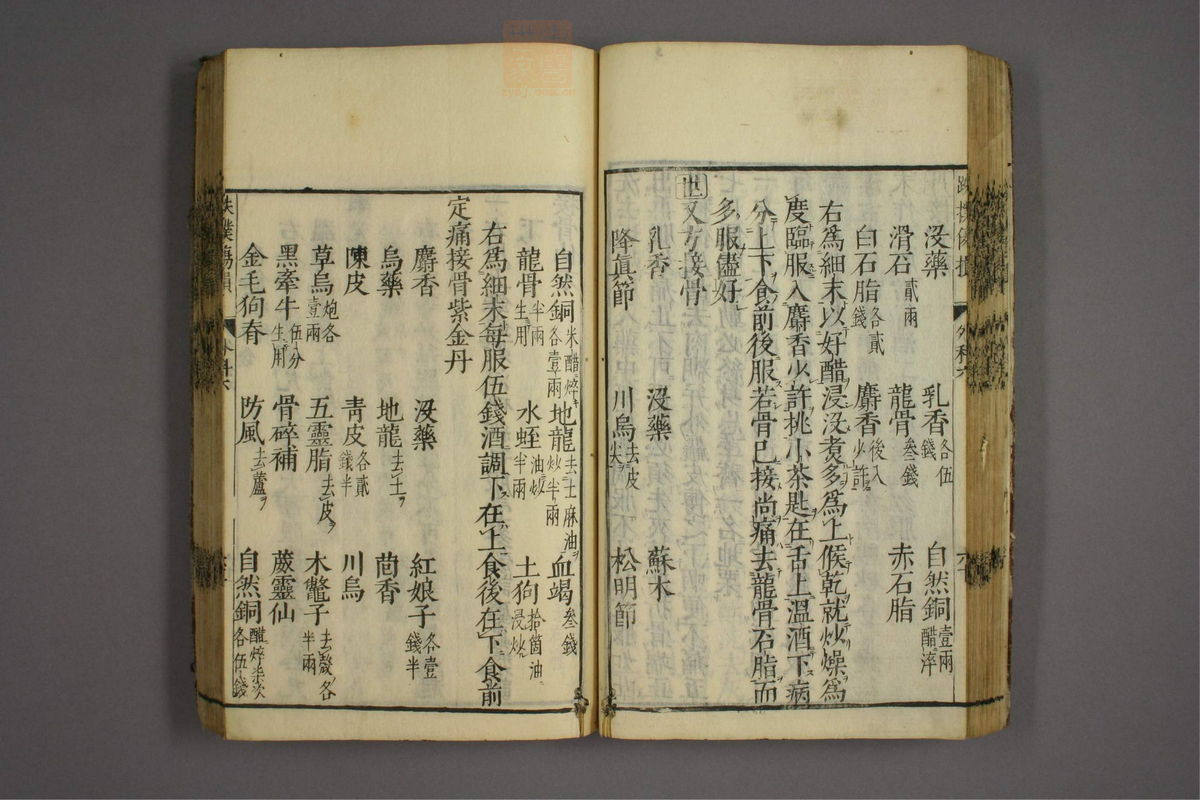 沒藥 乳香各伍錢 自然銅壹兩醋淬
滑石貳兩 龍骨叁錢 赤石脂
白石脂各貳錢 麝香後入少許
右爲細末以好醋浸没煮多爲上候乾就炒燥爲
度臨服入麝香少許挑小茶匙在舌上溫酒下病
分上下食前後服若骨已接尚痛去龍骨石脂而
多服儘好
世又方接骨
乳香 沒藥 蘇木
降眞節 川烏去皮尖 松明節
自然銅米醋焠各壹兩 地龍去土麻油炒半兩 血竭叁錢
龍骨半兩生用 水蛭油炒半兩 土狗拾箇油浸炒
右爲細末每服伍錢酒調下在上食後在下食前
定痛接骨紫金丹
麝香 沒藥 紅娘子各壹錢半
烏藥 地龍去土 茴香
陳皮 靑皮各貳錢半 川烏
草烏炮各壹兩 五靈脂去皮 木鼈子去殼各半兩
黑牽牛伍分生用 骨碎補 葳靈仙
金毛狗脊 防風去蘆 自然銅醋焠柒次各伍錢